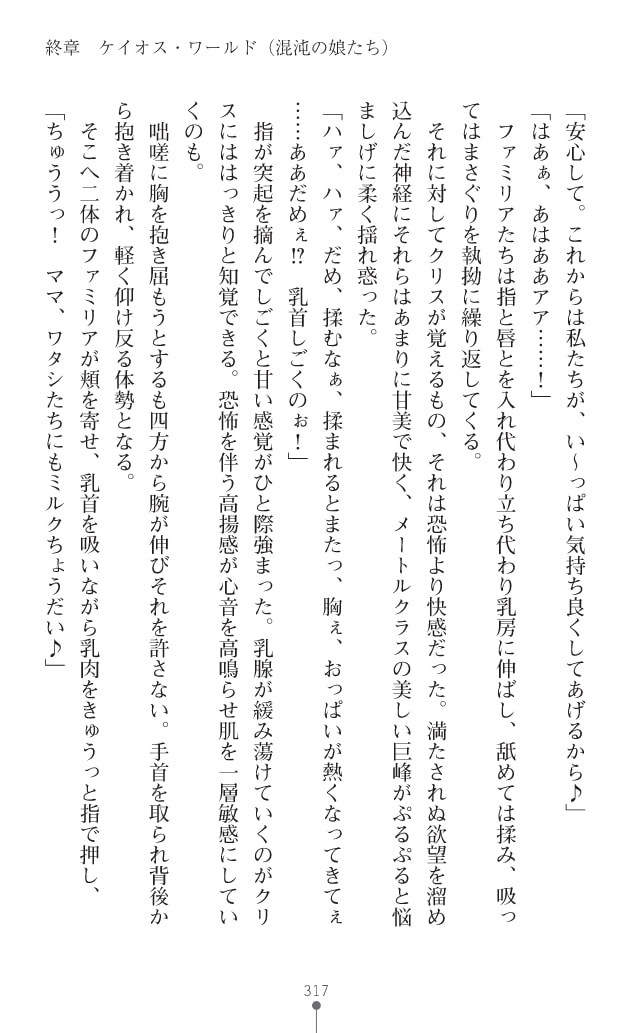 終章　ケイオス・ワールド（混沌の娘たち）
「安心して。これからは私たちが、い～っぱい気持ち良くしてあげるから♪」
「はあぁ、あはああアア……！」
　ファミリアたちは指と唇とを入れ代わり立ち代わり乳房に伸ばし、舐めては揉み、吸っ
てはまさぐりを執拗に繰り返してくる。
　それに対してクリスが覚えるもの、それは恐怖より快感だった。満たされぬ欲望を溜め
込んだ神経にそれらはあまりに甘美で快く、メートルクラスの美しい巨峰がぷるぷると悩
ましげに柔く揺れ惑った。
「ハァ、ハァ、だめ、揉むなぁ、揉まれるとまたっ、胸ぇ、おっぱいが熱くなってきてぇ
……ああだめぇ!?　乳首しごくのぉ！」
　指が突起を摘んでしごくと甘い感覚がひと際強まった。乳腺が緩み蕩けていくのがクリ
スにははっきりと知覚できる。恐怖を伴う高揚感が心音を高鳴らせ肌を一層敏感にしてい
くのも。
　咄嗟に胸を抱き屈もうとするも四方から腕が伸びそれを許さない。手首を取られ背後か
ら抱き着かれ、軽く仰け反る体勢となる。
　そこへ二体のファミリアが頬を寄せ、乳首を吸いながら乳肉をきゅうっと指で押し、
「ちゅううっ！　ママ、ワタシたちにもミルクちょうだい♪」
317